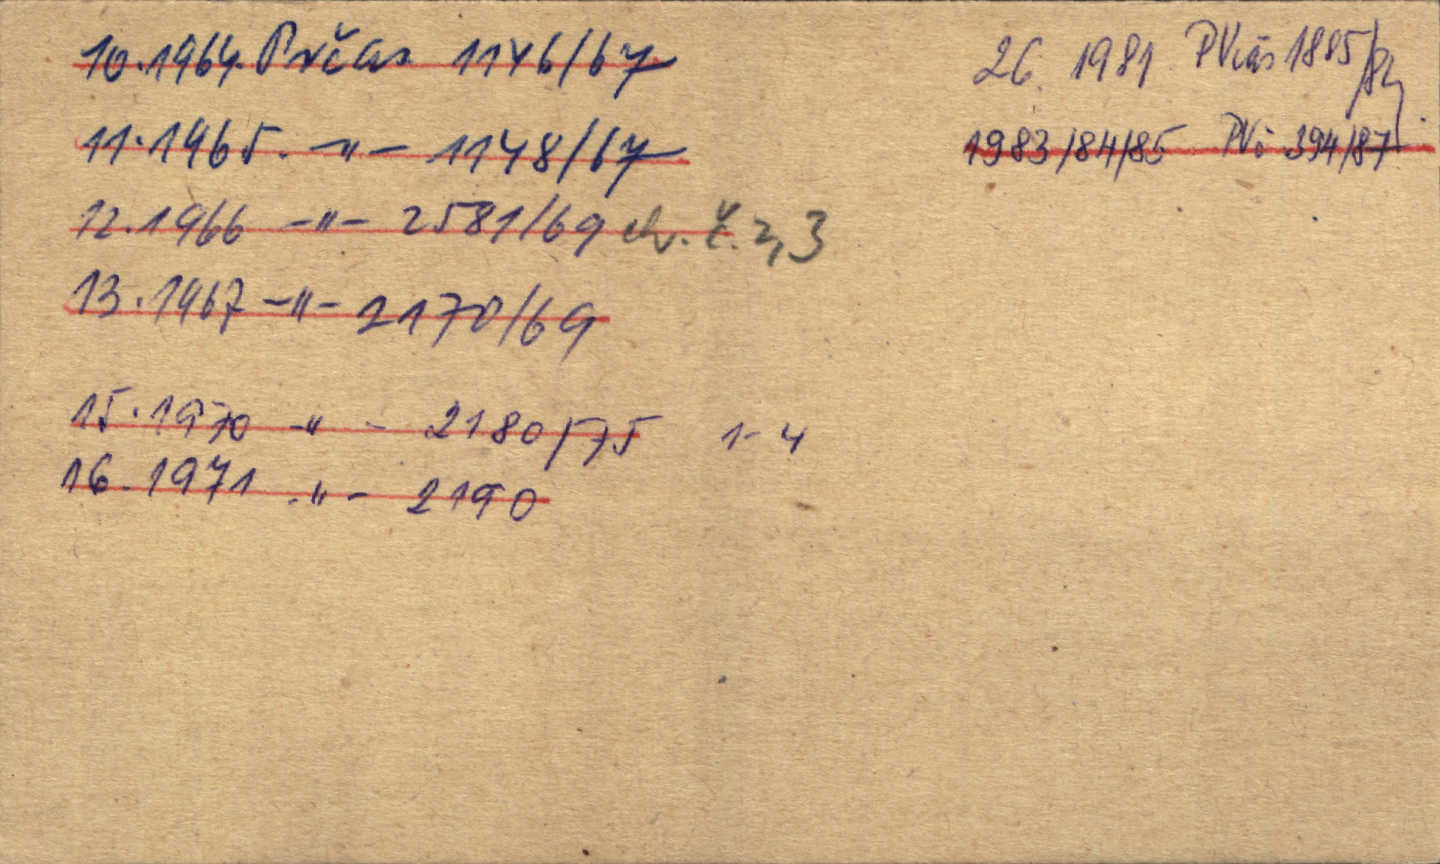 10.1964. Prčas 1146/67
11.1965. -"- 1148/67
12.1966 -"- 2581/69 chv. č. 2,3
13.1967 -"- 2170/69
15.1970 -"- 2180/75 1-4
16.1971 -"- 2190
26. 1981 PVčás 1885/
1983/84/85 PVč 394/87